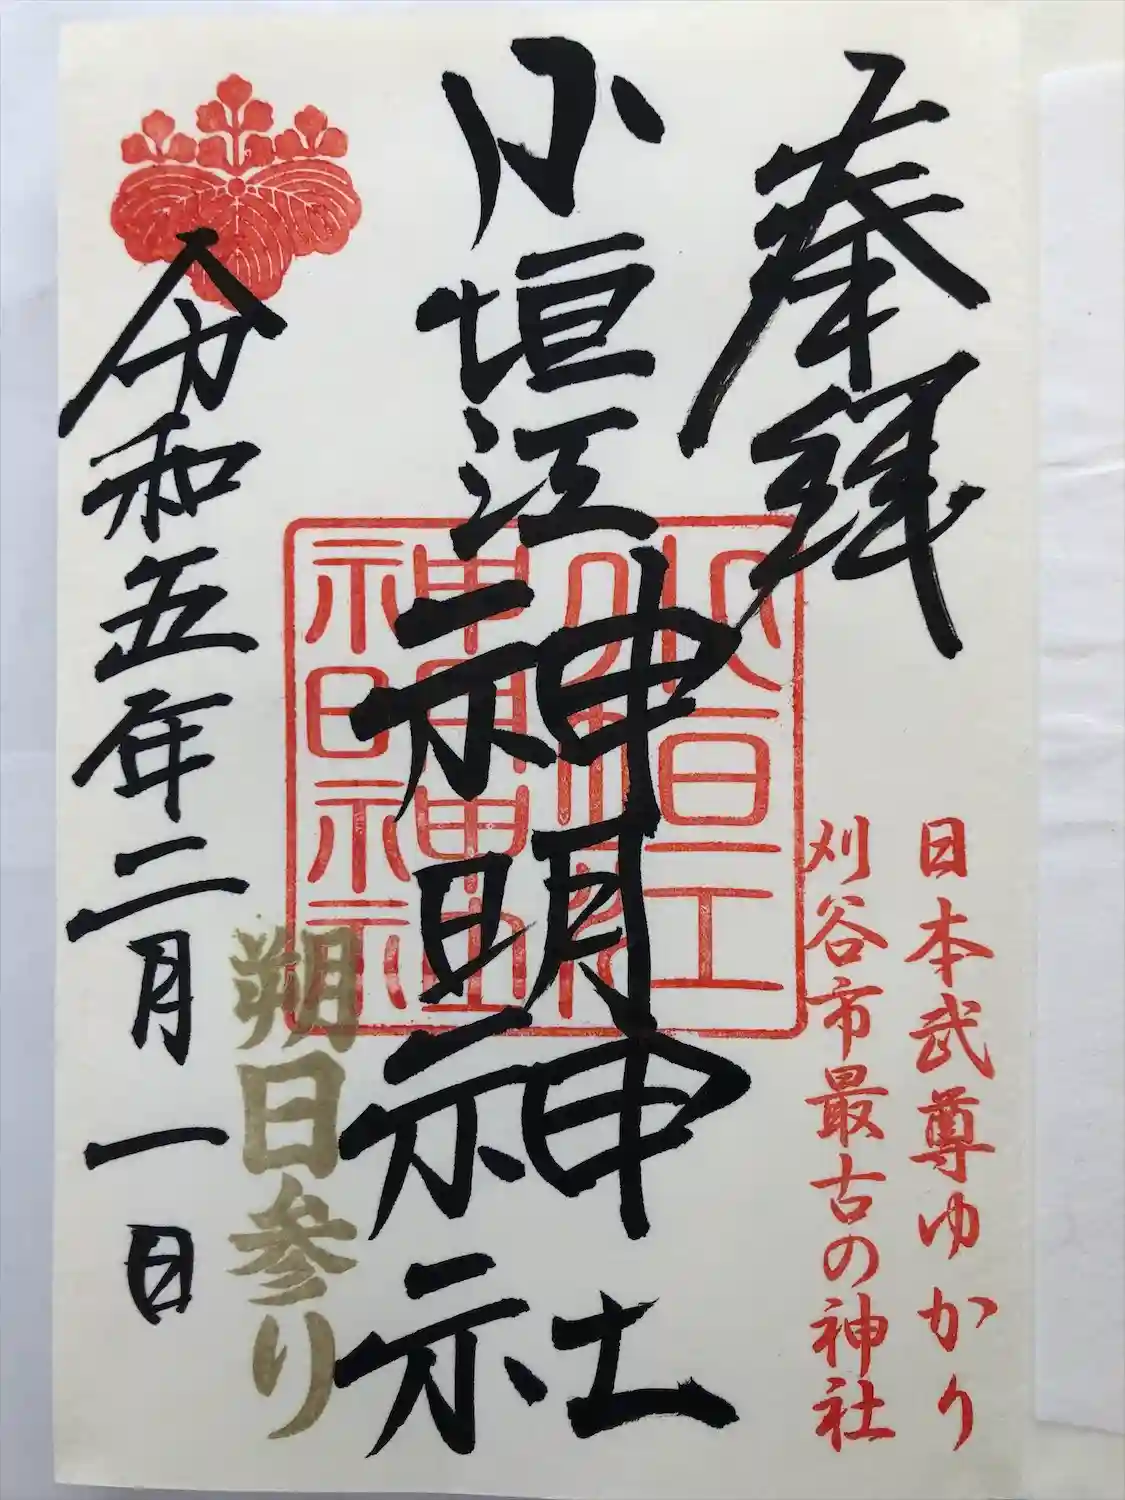 奉拝
日本武尊ゆかり
刈谷市最古の神社
小垣江神明神社
小垣江神明神社
朔日参り
令和五年二月一日